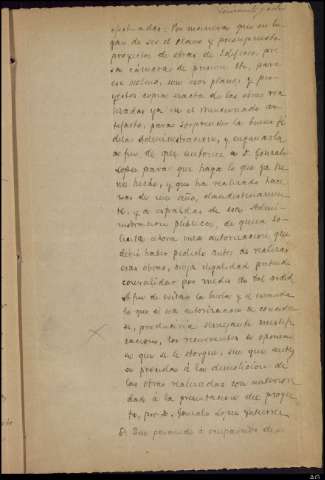 efectuadas: Por manera, que en lu-
gar de ser el plano y presupuesto
proyectos de obras de edificio, pre-
sa cámara de presión etc, para
ese molino, son esos planos y pro-
yectos copia exacta de las obras rea-
lizadas ya en el mencionado ar-
tefacto, para sorprender la buena fé
de la Administración, y engañarla
a fin de que autorice a D. Gonzalo
López para que haga lo que ya tie-
ne hecho, y que ha realizado hace
mas de un año, clandestinamen-
te, y a espaldas de esa Admi-
nistración pública, de quien so-
licita ahora una autorización, que
debió haber pedido antes de realizar
esas obras, cuya ilegalidad pretende
convalidar por medio de tal ardid
A fin de evitar la burla y el escarnio
lo que si esa autorización se concedie-
se, produciria semejante mistifi-
cacion, los recurrentes se oponen
a que se le otorgue, sin que antes
se proceda á la demolición de
las obras realizadas con anteriori-
dad á la presentación del proyec-
to, por D. Gonzalo López Gutierrez